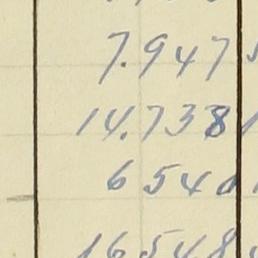 7.947
14.738
6540
16548